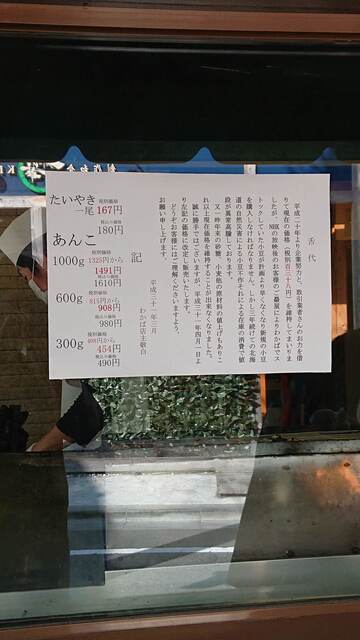 舌代
平成二十年より企業努力と、取引業者さんのお力を借
りて現在の価格(税別百三十九円)を維持してまいりま
したが、NHKの放映後のお客様のご贔屓によりわかばでス
トックしていた小豆が計画より早くなくなり新規の小豆
を購入しなければなりません。しかし三年続けての北海
道の自然災害による小豆の不作それによる在庫の消費で値
段が異常高騰しております。
又一昨年来の砂糖、小麦他の原材料の値上げもありこ
れ以上現在価格を維持することが出来なくなりました。
誠に勝手でございますが、平成三十一年四月一日よ
り左記の価格に改定し販売いたします。
どうぞお客様にはご理解くださいますよう、
お願い申し上げます。
平成三十一年三月
わかば店主敬白
記
たいやき
一尾
税別価格
167円
税込み価格
180円
あんこ
1000g
税別価格
1325円から
1491円
税込み価格
1610円
600g
税別価格
815円から
908円
税込み価格
980円
300g
税別価格
408円から
454円
税込み価格
490円